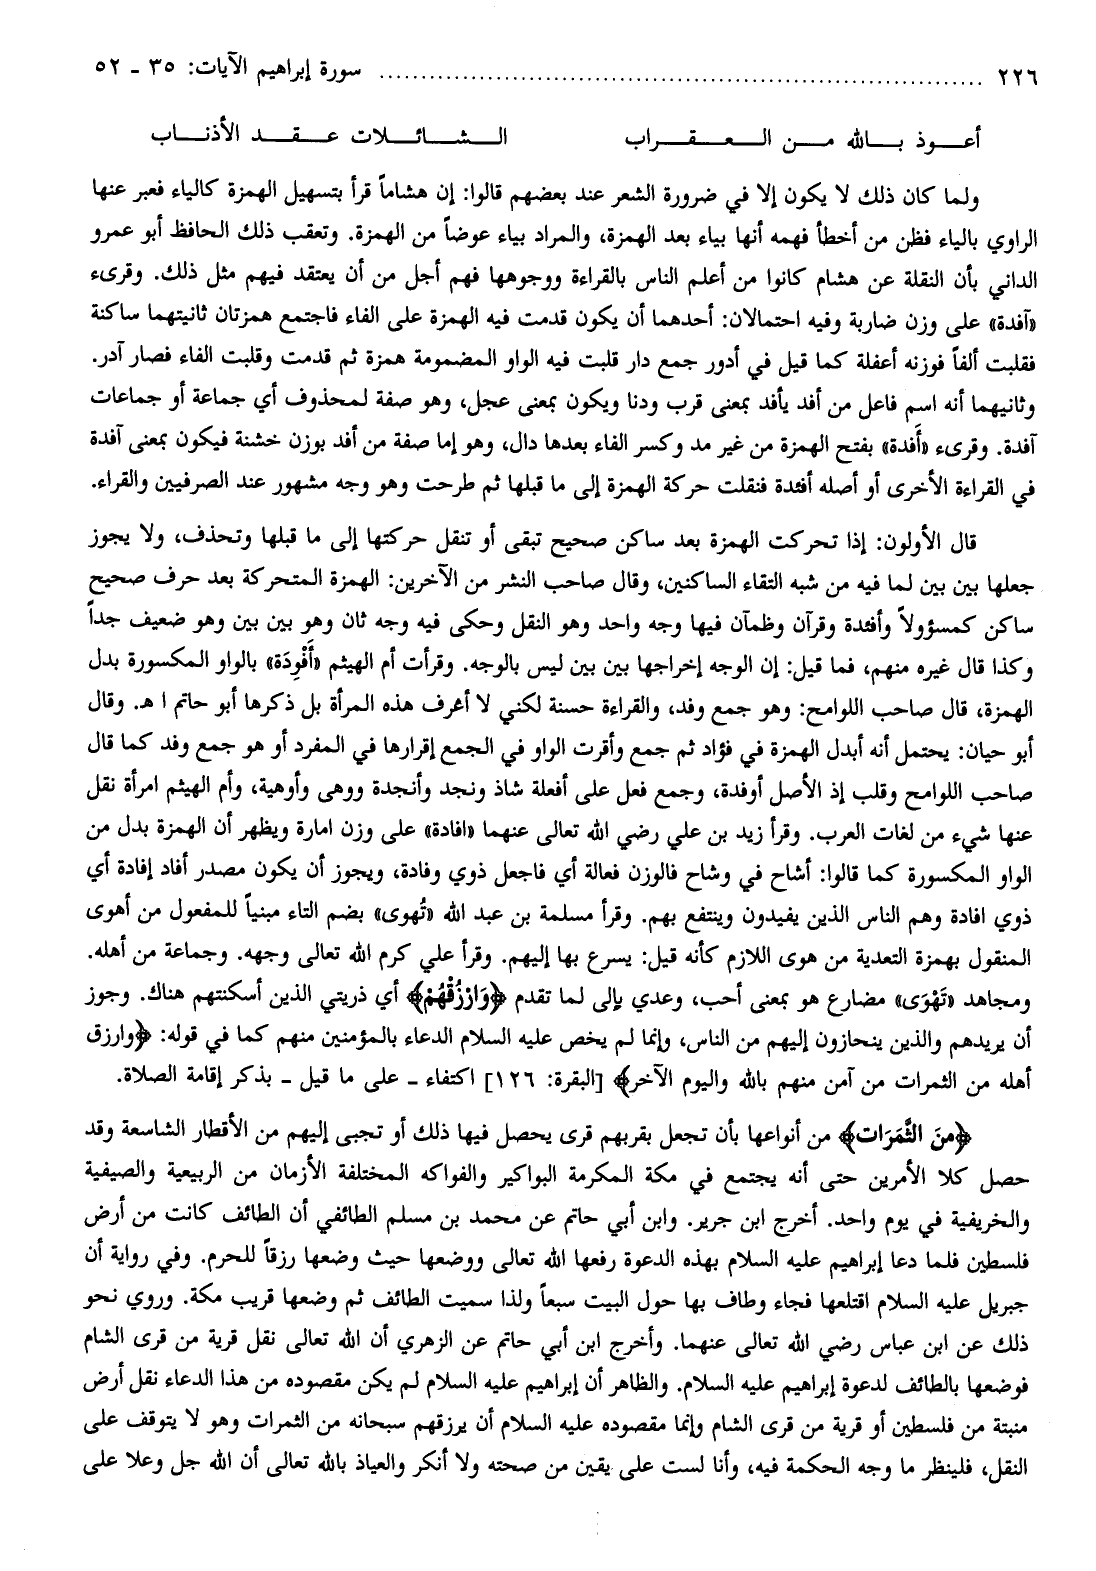 ٢٢٦ ........ سورة إبراهيم الآيات: ٣٥ - ٥٢
أعوذ بالله من العقراب الشائلات عقد الأذناب
ولما كان ذلك لا يكون إلا في ضرورة الشعر عند بعضهم قالوا: إن هشاماً قرأ بتسهيل الهمزة كالياء فعبر عنها
الراوي بالياء فظن من أخطأ فهمه أنها بياء بعد الهمزة، والمراد بياء عوضاً من الهمزة. وتعقب ذلك الحافظ أبو عمرو
الداني بأن النقلة عن هشام كانوا من أعلم الناس بالقراءة ووجوهها فهم أجل من أن يعتقد فيهم مثل ذلك. وقرىء
«آفدة» على وزن ضاربة وفيه احتمالان: أحدهما أن يكون قدمت فيه الهمزة على الفاء فاجتمع همزتان ثانيتهما ساكنة
فقلبت ألفاً فوزنه أعفلة كما قيل في أدور جمع دار قلبت فيه الواو المضمومة همزة ثم قدمت وقلبت الفاء فصار آدر.
وثانيهما أنه اسم فاعل من أفد يأفد بمعنى قرب ودنا ويكون بمعنى عجل، وهو صفة لمحذوف أي جماعة أو جماعات
آفدة. وقرىء «أَفدة» بفتح الهمزة من غير مد وكسر الفاء بعدها دال، وهو إما صفة من أفد بوزن خشنة فيكون بمعنى آفدة
في القراءة الأخرى أو أصله أفئدة فنقلت حركة الهمزة إلى ما قبلها ثم طرحت وهو وجه مشهور عند الصرفيين والقراء.
قال الأولون: إذا تحركت الهمزة بعد ساكن صحيح تبقى أو تنقل حركتها إلى ما قبلها وتحذف، ولا يجوز
جعلها بين بين لما فيه من شبه التقاء الساكنين، وقال صاحب النشر من الآخرين: الهمزة المتحركة بعد حرف صحيح
ساكن كمسؤولاً وأفئدة وقرآن وظمآن فيها وجه واحد وهو النقل وحكى فيه وجه ثان وهو بين بين وهو ضعيف جداً
وكذا قال غيره منهم، فما قيل: إن الوجه إخراجها بين بين ليس بالوجه. وقرأت أم الهيثم «أَفْوِدَة» بالواو المكسورة بدل
الهمزة، قال صاحب اللوامح: وهو جمع وفد، والقراءة حسنة لكني لا أعرف هذه المرأة بل ذكرها أبو حاتم ا هـ. وقال
أبو حيان: يحتمل أنه أبدل الهمزة في فؤاد ثم جمع وأقرت الواو في الجمع إقرارها في المفرد أو هو جمع وفد كما قال
صاحب اللوامح وقلب إذ الأصل أوفدة، وجمع فعل على أفعلة شاذ ونجد وأنجدة ووهى وأوهية، وأم الهيثم امرأة نقل
عنها شيء من لغات العرب. وقرأ زيد بن علي رضي الله تعالى عنهما «افادة» على وزن امارة ويظهر أن الهمزة بدل من
الواو المكسورة كما قالوا: أشاح في وشاح فالوزن فعالة أي فاجعل ذوي وفادة، ويجوز أن يكون مصدر أفاد إفادة أي
ذوي افادة وهم الناس الذين يفيدون وينتفع بهم. وقرأ مسلمة بن عبد الله «تُهوى» بضم التاء مبنياً للمفعول من أهوى
المنقول بهمزة التعدية من هوى اللازم كأنه قيل: يسرع بها إليهم. وقرأ علي كرم الله تعالى وجهه. وجماعة من أهله.
ومجاهد «تَهْوَى» مضارع هو بمعنى أحب، وعدي بإلى لما تقدم ﴿وَارْزُقْهُمْ﴾ أي ذريتي الذين أسكنتهم هناك. وجوز
أن يريدهم والذين ينحازون إليهم من الناس، وإنما لم يخص عليه السلام الدعاء بالمؤمنين منهم كما في قوله: ﴿وارزق
أهله من الثمرات من آمن منهم بالله واليوم الآخر﴾ [البقرة: ١٢٦] اكتفاء - على ما قيل - بذكر إقامة الصلاة.
﴿منَ الثَّمَرَات﴾ من أنواعها بأن تجعل بقربهم قرى يحصل فيها ذلك أو تجبى إليهم من الأقطار الشاسعة وقد
حصل كلا الأمرين حتى أنه يجتمع في مكة المكرمة البواكير والفواكه المختلفة الأزمان من الربيعية والصيفية
والخريفية في يوم واحد. أخرج ابن جرير. وابن أبي حاتم عن محمد بن مسلم الطائفي أن الطائف كانت من أرض
فلسطين فلما دعا إبراهيم عليه السلام بهذه الدعوة رفعها الله تعالى ووضعها حيث وضعها رزقاً للحرم. وفي رواية أن
جبريل عليه السلام اقتلعها فجاء وطاف بها حول البيت سبعاً ولذا سميت الطائف ثم وضعها قريب مكة. وروي نحو
ذلك عن ابن عباس رضي الله تعالى عنهما. وأخرج ابن أبي حاتم عن الزهري أن الله تعالى نقل قرية من قرى الشام
فوضعها بالطائف لدعوة إبراهيم عليه السلام. والظاهر أن إبراهيم عليه السلام لم يكن مقصوده من هذا الدعاء نقل أرض
منبتة من فلسطين أو قرية من قرى الشام وإنما مقصوده عليه السلام أن يرزقهم سبحانه من الثمرات وهو لا يتوقف على
النقل، فلينظر ما وجه الحكمة فيه، وأنا لست على يقين من صحته ولا أنكر والعياذ بالله تعالى أن الله جل وعلا على